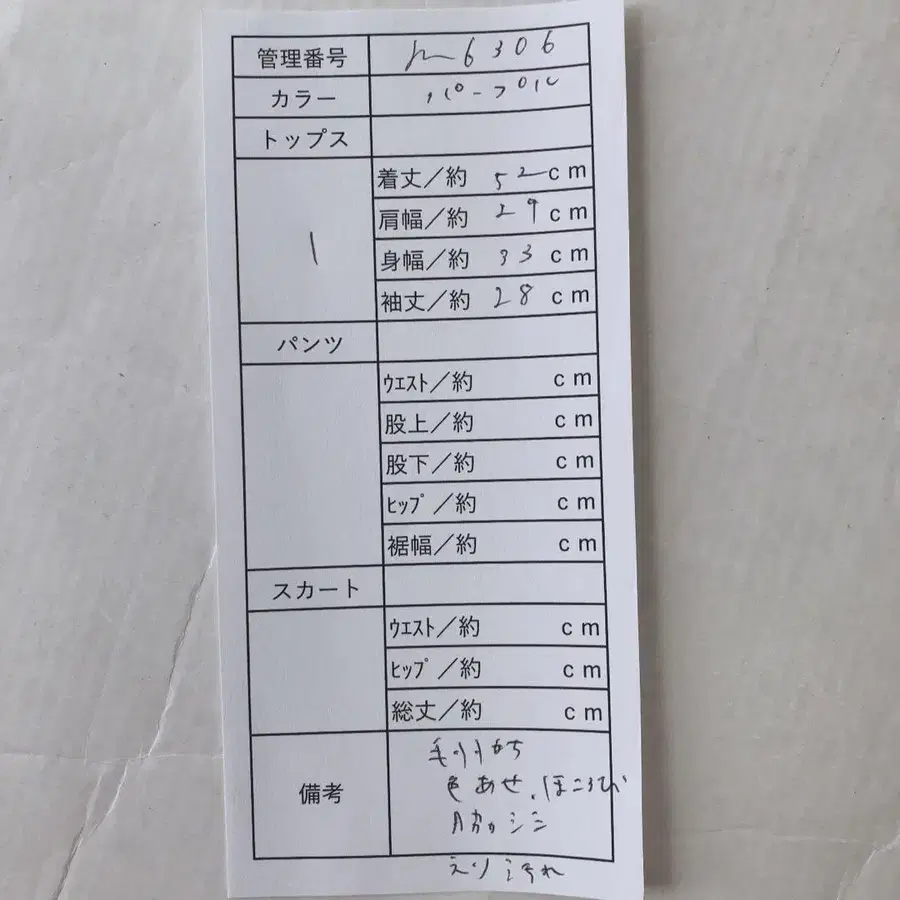 管理番号 m6306
カラー パープル
トップス
1
着丈／約 52cm
肩幅／約 29cm
身幅／約 33cm
袖丈／約 28cm
パンツ
ｳｴｽﾄ／約 cm
股上／約 cm
股下／約 cm
ﾋｯﾌﾟ／約 cm
裾幅／約 cm
スカート
ｳｴｽﾄ／約 cm
ﾋｯﾌﾟ／約 cm
総丈／約 cm
備考
色あせ、ほころび
脇シミ
えり汚れ